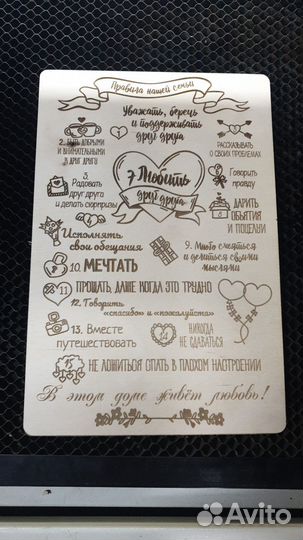 Правила нашей семьи
Уважать, беречь
и поддерживать
друг друга
1
2. БЫТЬ ДОБРЫМИ
И ВНИМАТЕЛЬНЫМИ
К ДРУГ ДРУГУ
РАССКАЗЫВАТЬ
О СВОИХ ПРОБЛЕМАХ
3.
Радовать
друг друга
и делать сюрпризы
7 Любить
друг друга
Говорить
правду
4
6
ДАРИТЬ
ОБЪЯТИЯ
И ПОЦЕЛУИ
Исполнять
свои обещания
9. Много смеяться
и делиться своими
мыслями
10. МЕЧТАТЬ
11
ПРОЩАТЬ, ДАЖЕ КОГДА ЭТО ТРУДНО
12. Говорить
«спасибо» и «пожалуйста»
13. Вместе
путешествовать
14
НИКОГДА
НЕ СДАВАТЬСЯ
15
НЕ ЛОЖИТЬСЯ СПАТЬ В ПЛОХОМ НАСТРОЕНИИ
В этом доме живёт любовь!
Avito